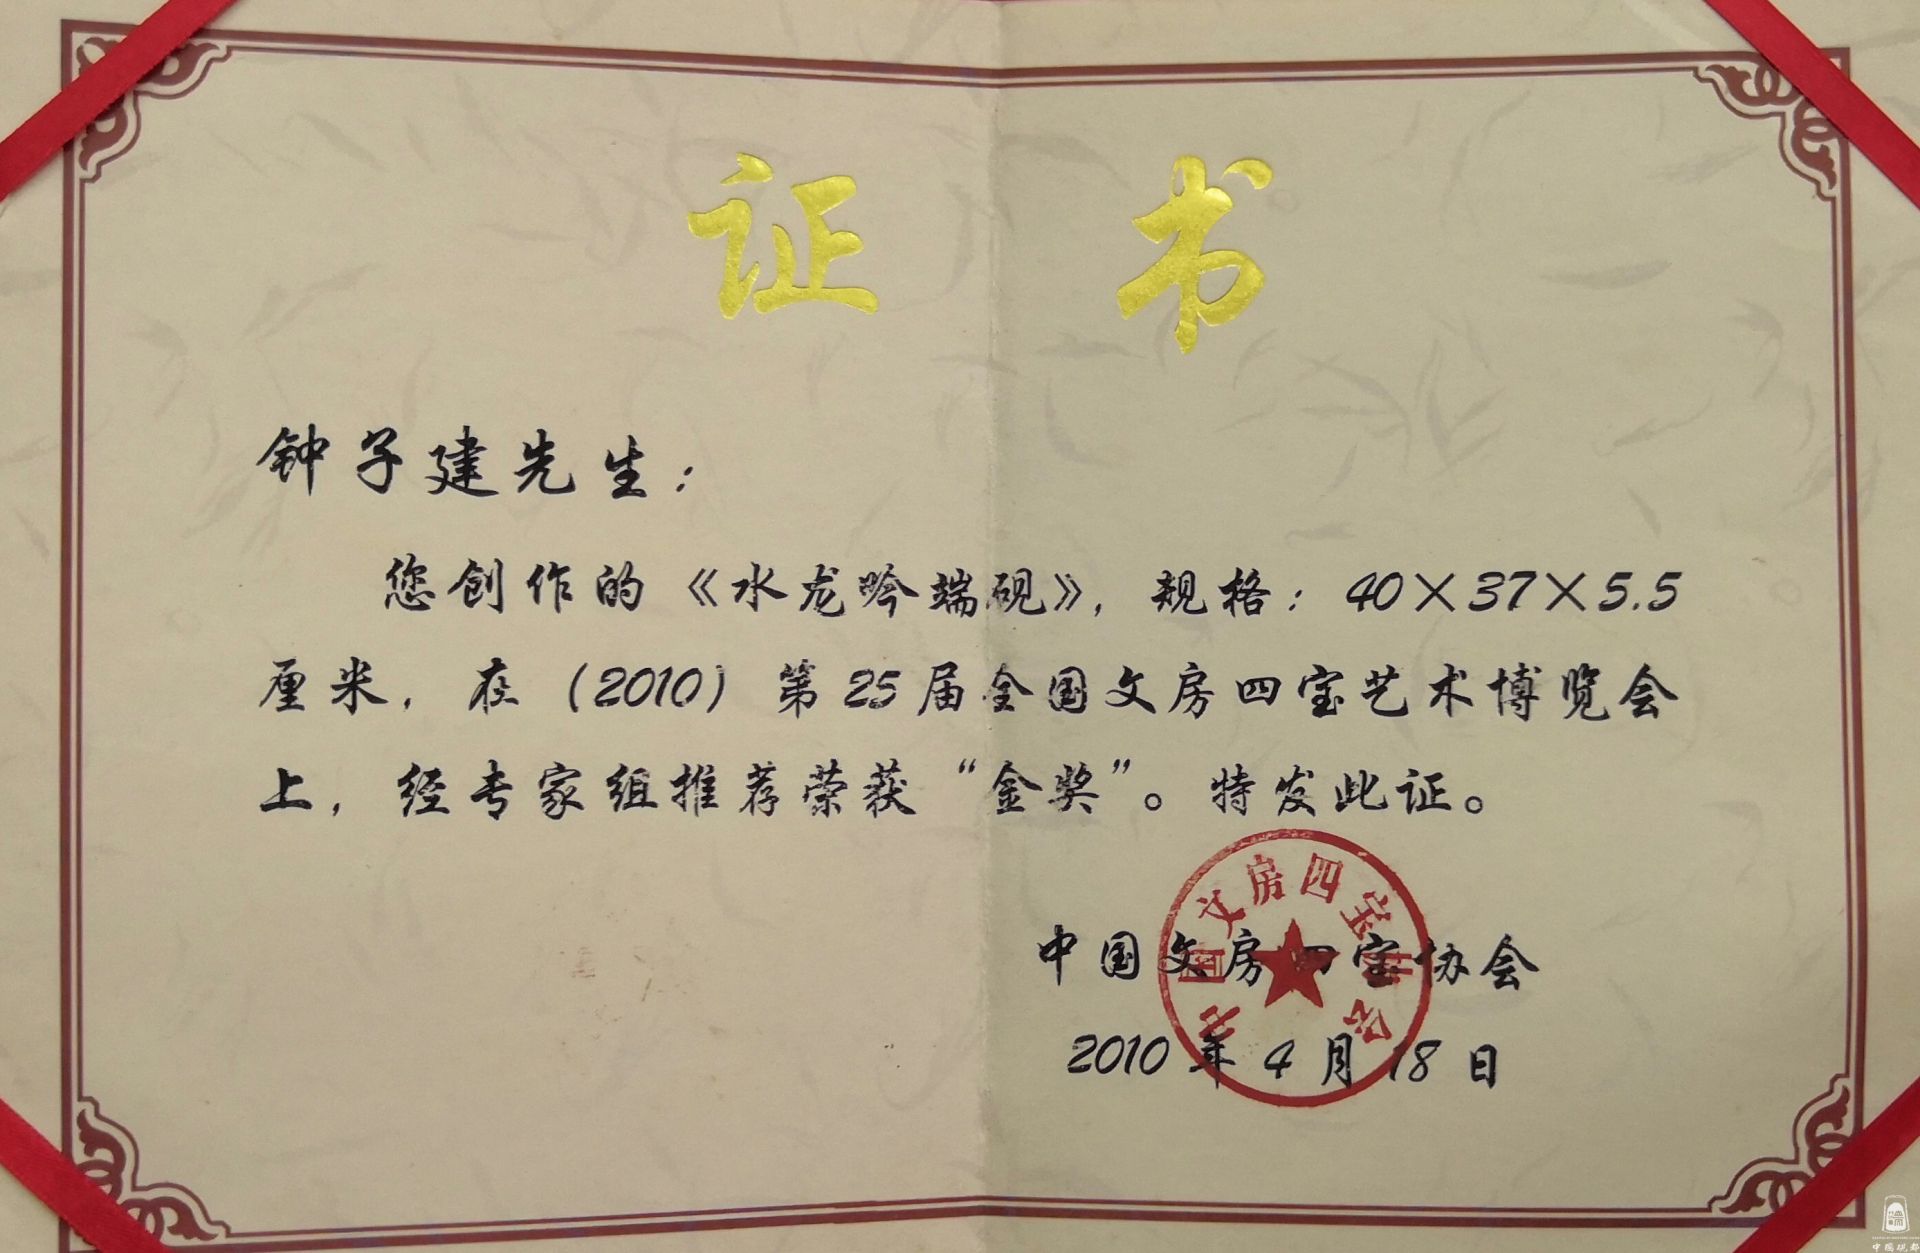 证 书
钟子建先生：
您创作的《水龙吟端砚》，规格：40×37×5.5
厘米，在（2010）第25届全国文房四宝艺术博览会
上，经专家组推荐荣获“金奖”。特发此证。
中国文房四宝协会
中国文房四宝协会
2010年4月18日
中国砚都